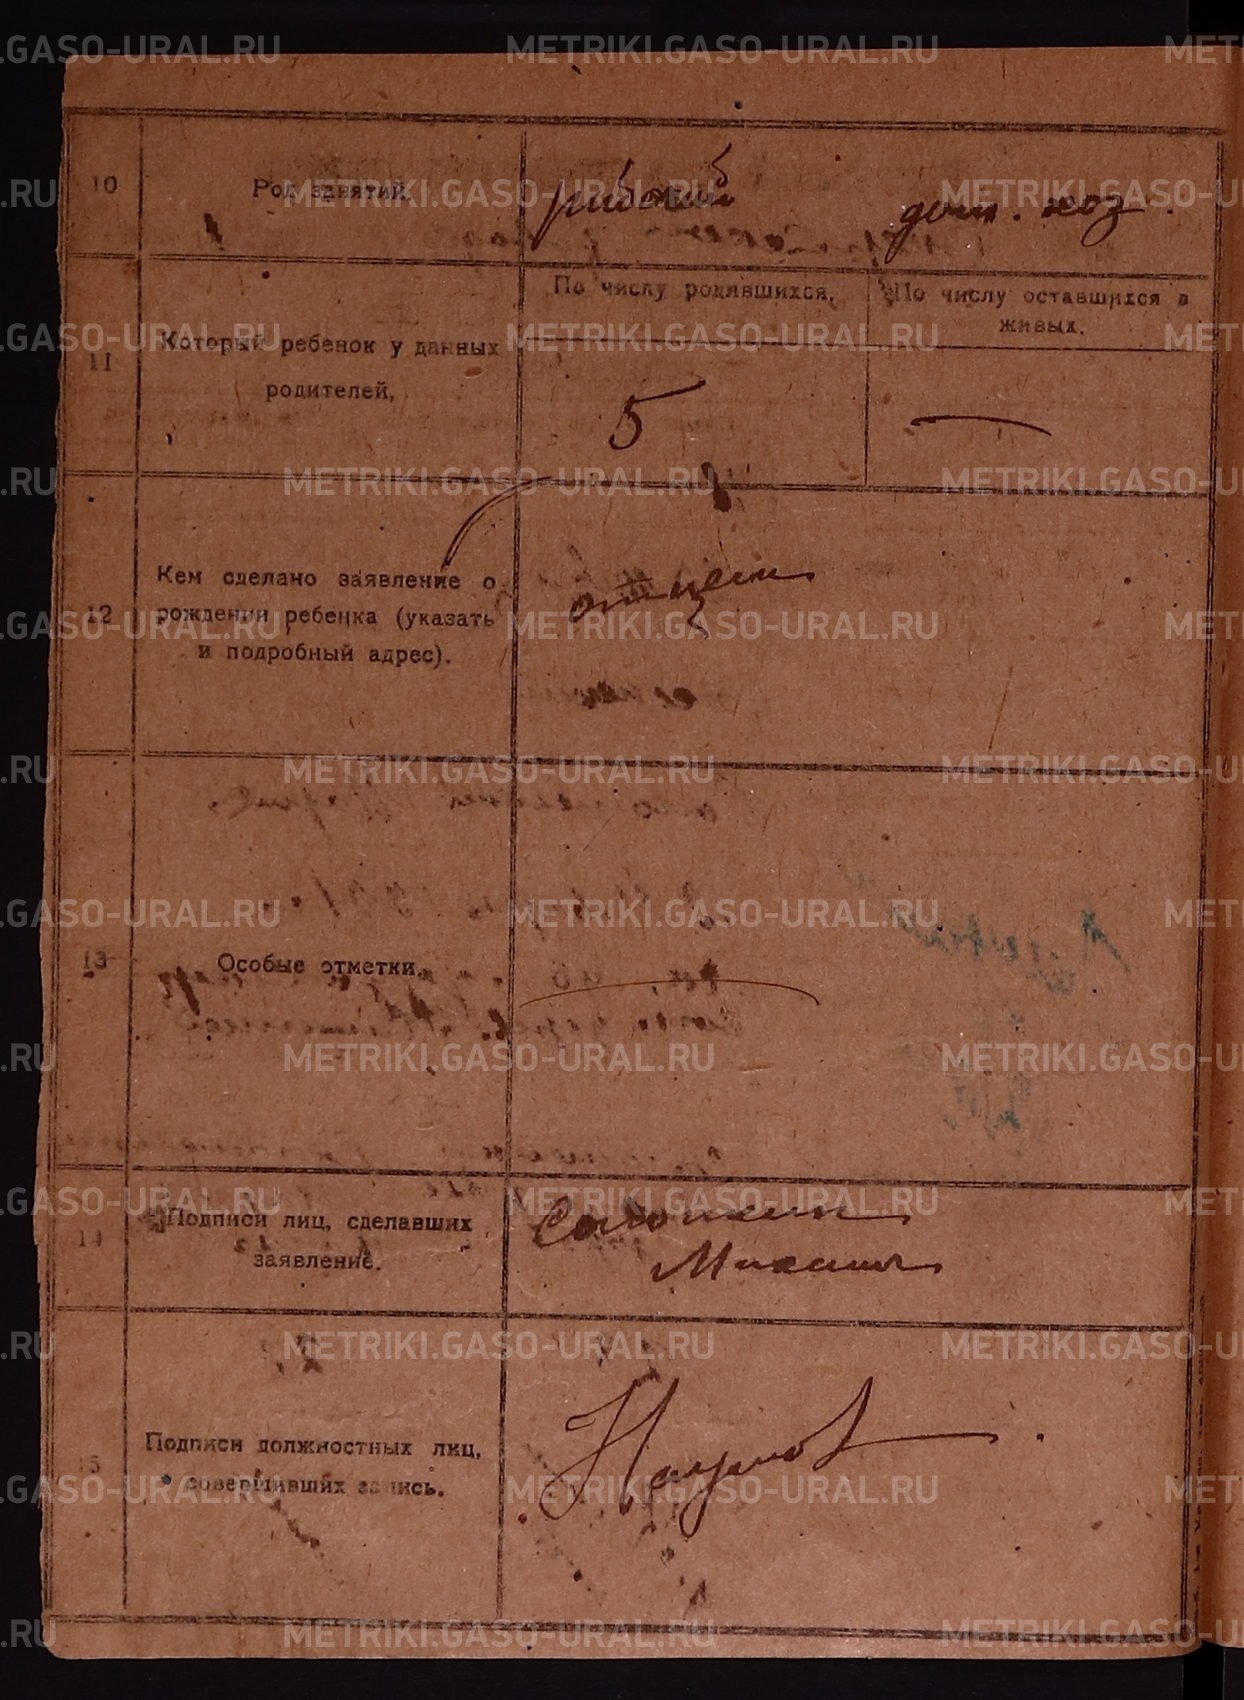 10
Род занятий.
рабочий
дом. хоз.
11
Который ребенок у данных
родителей.
По числу родившихся.
По числу оставшихся в
живых.
5
—
12
Кем сделано заявление о
рождении ребенка (указать
и подробный адрес).
отцем
13
Особые отметки.
14
Подписи лиц, сделавших
заявление.
Михаил
15
Подписи должностных лиц,
совершивших запись.
Наумов
METRIKI.GASO-URAL.RU